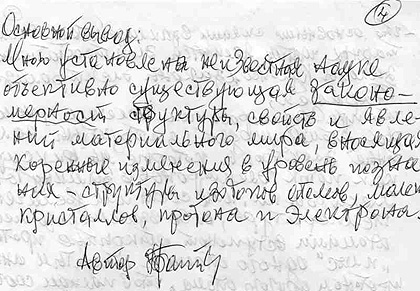 14
Основной вывод:
Мною установлена неизвестная науке
объективно существующая законо-
мерность структуры, свойств и явле-
ний материального мира, вносящая
коренные изменения в уровень позна-
ния – структуры изотопов атомов,
кристаллов, протона и электрона.
Автор